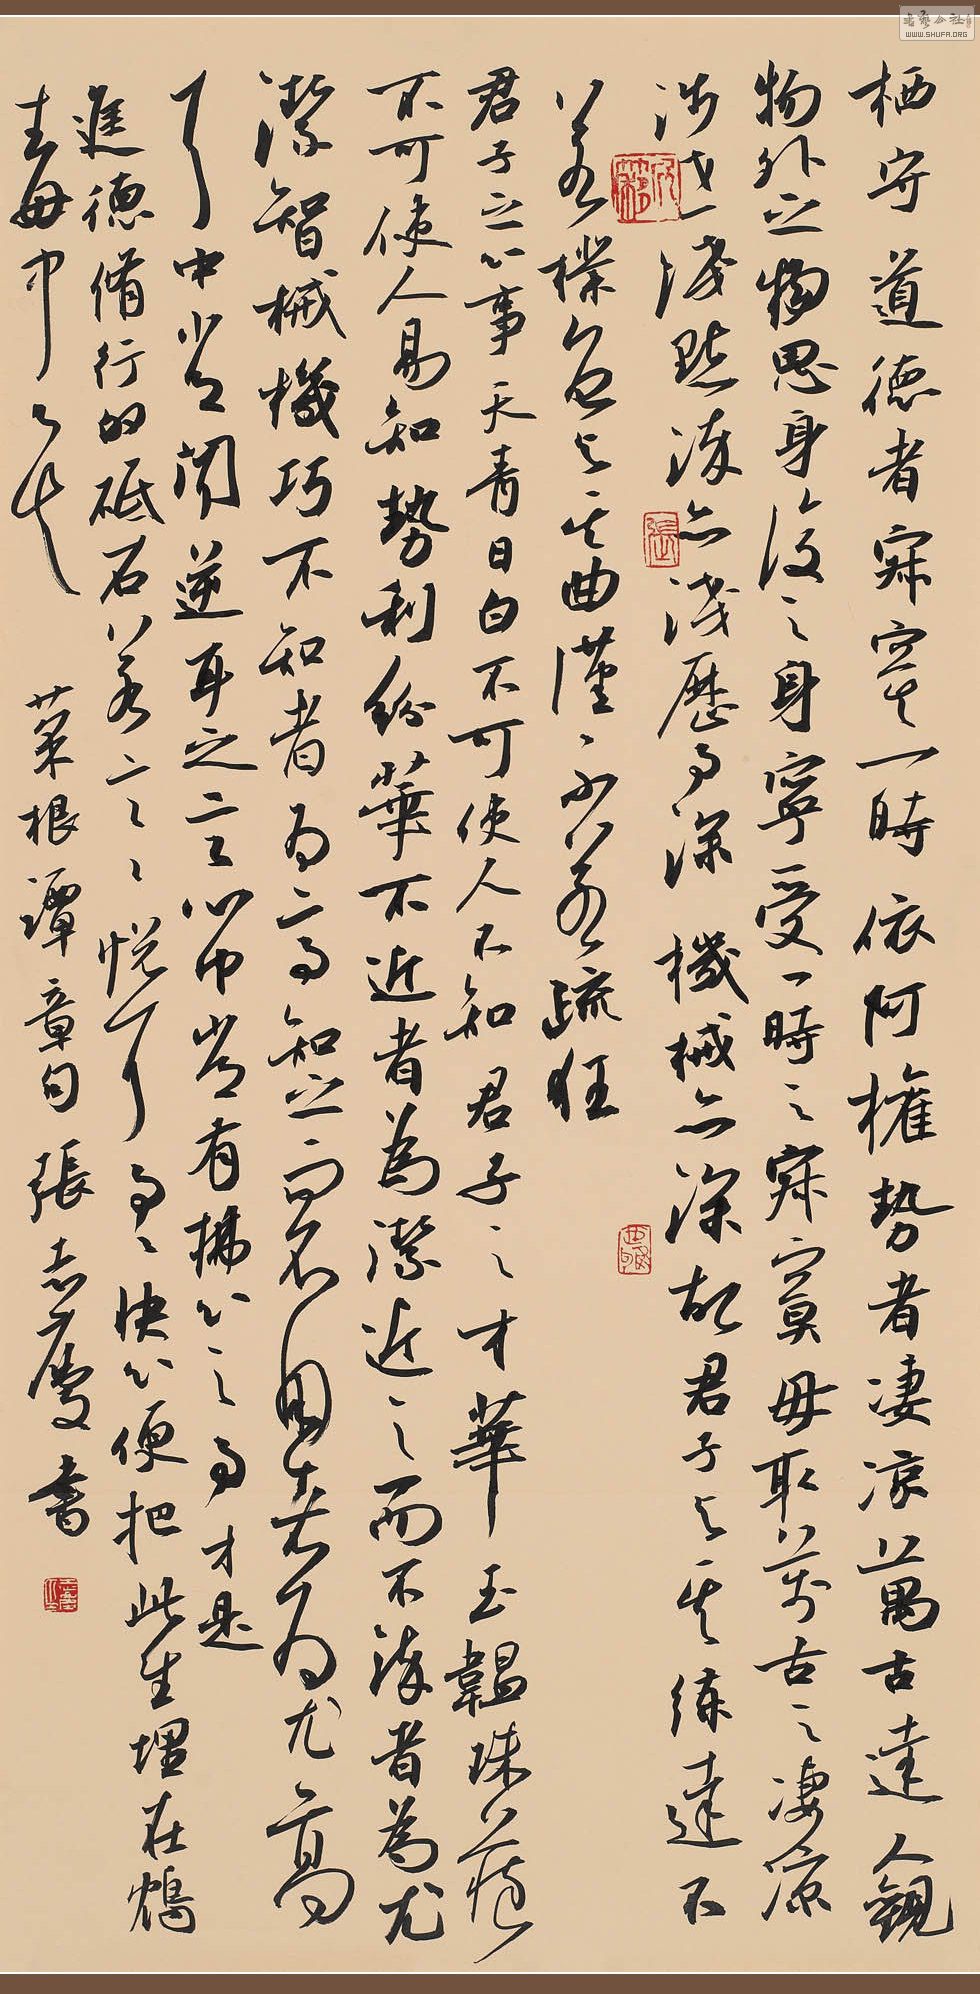 栖守道德者寂寞一時依阿權勢者淒涼萬古達人觀
物外之物思身後之身寧受一時之寂寞毋取萬古之淒涼
涉世淺點染亦淺歷事深機械亦深故君子與其練達不
若樸魯與其曲謹不若疏狂
君子之心事天青日白不可使人不知君子之才華玉韞珠藏
不可使人易知勢利紛華不近者為潔近之而不染者為尤
潔智械機巧不知者為高知之而不用者為尤高
耳中常聞逆耳之言心中常有拂心之事才是
進德脩行的砥石若言々悅耳事々快心便把此生埋在鴆
毒中矣 菜根譚章句 張志慶書
張
書藝公社
WWW.SHUFA.ORG